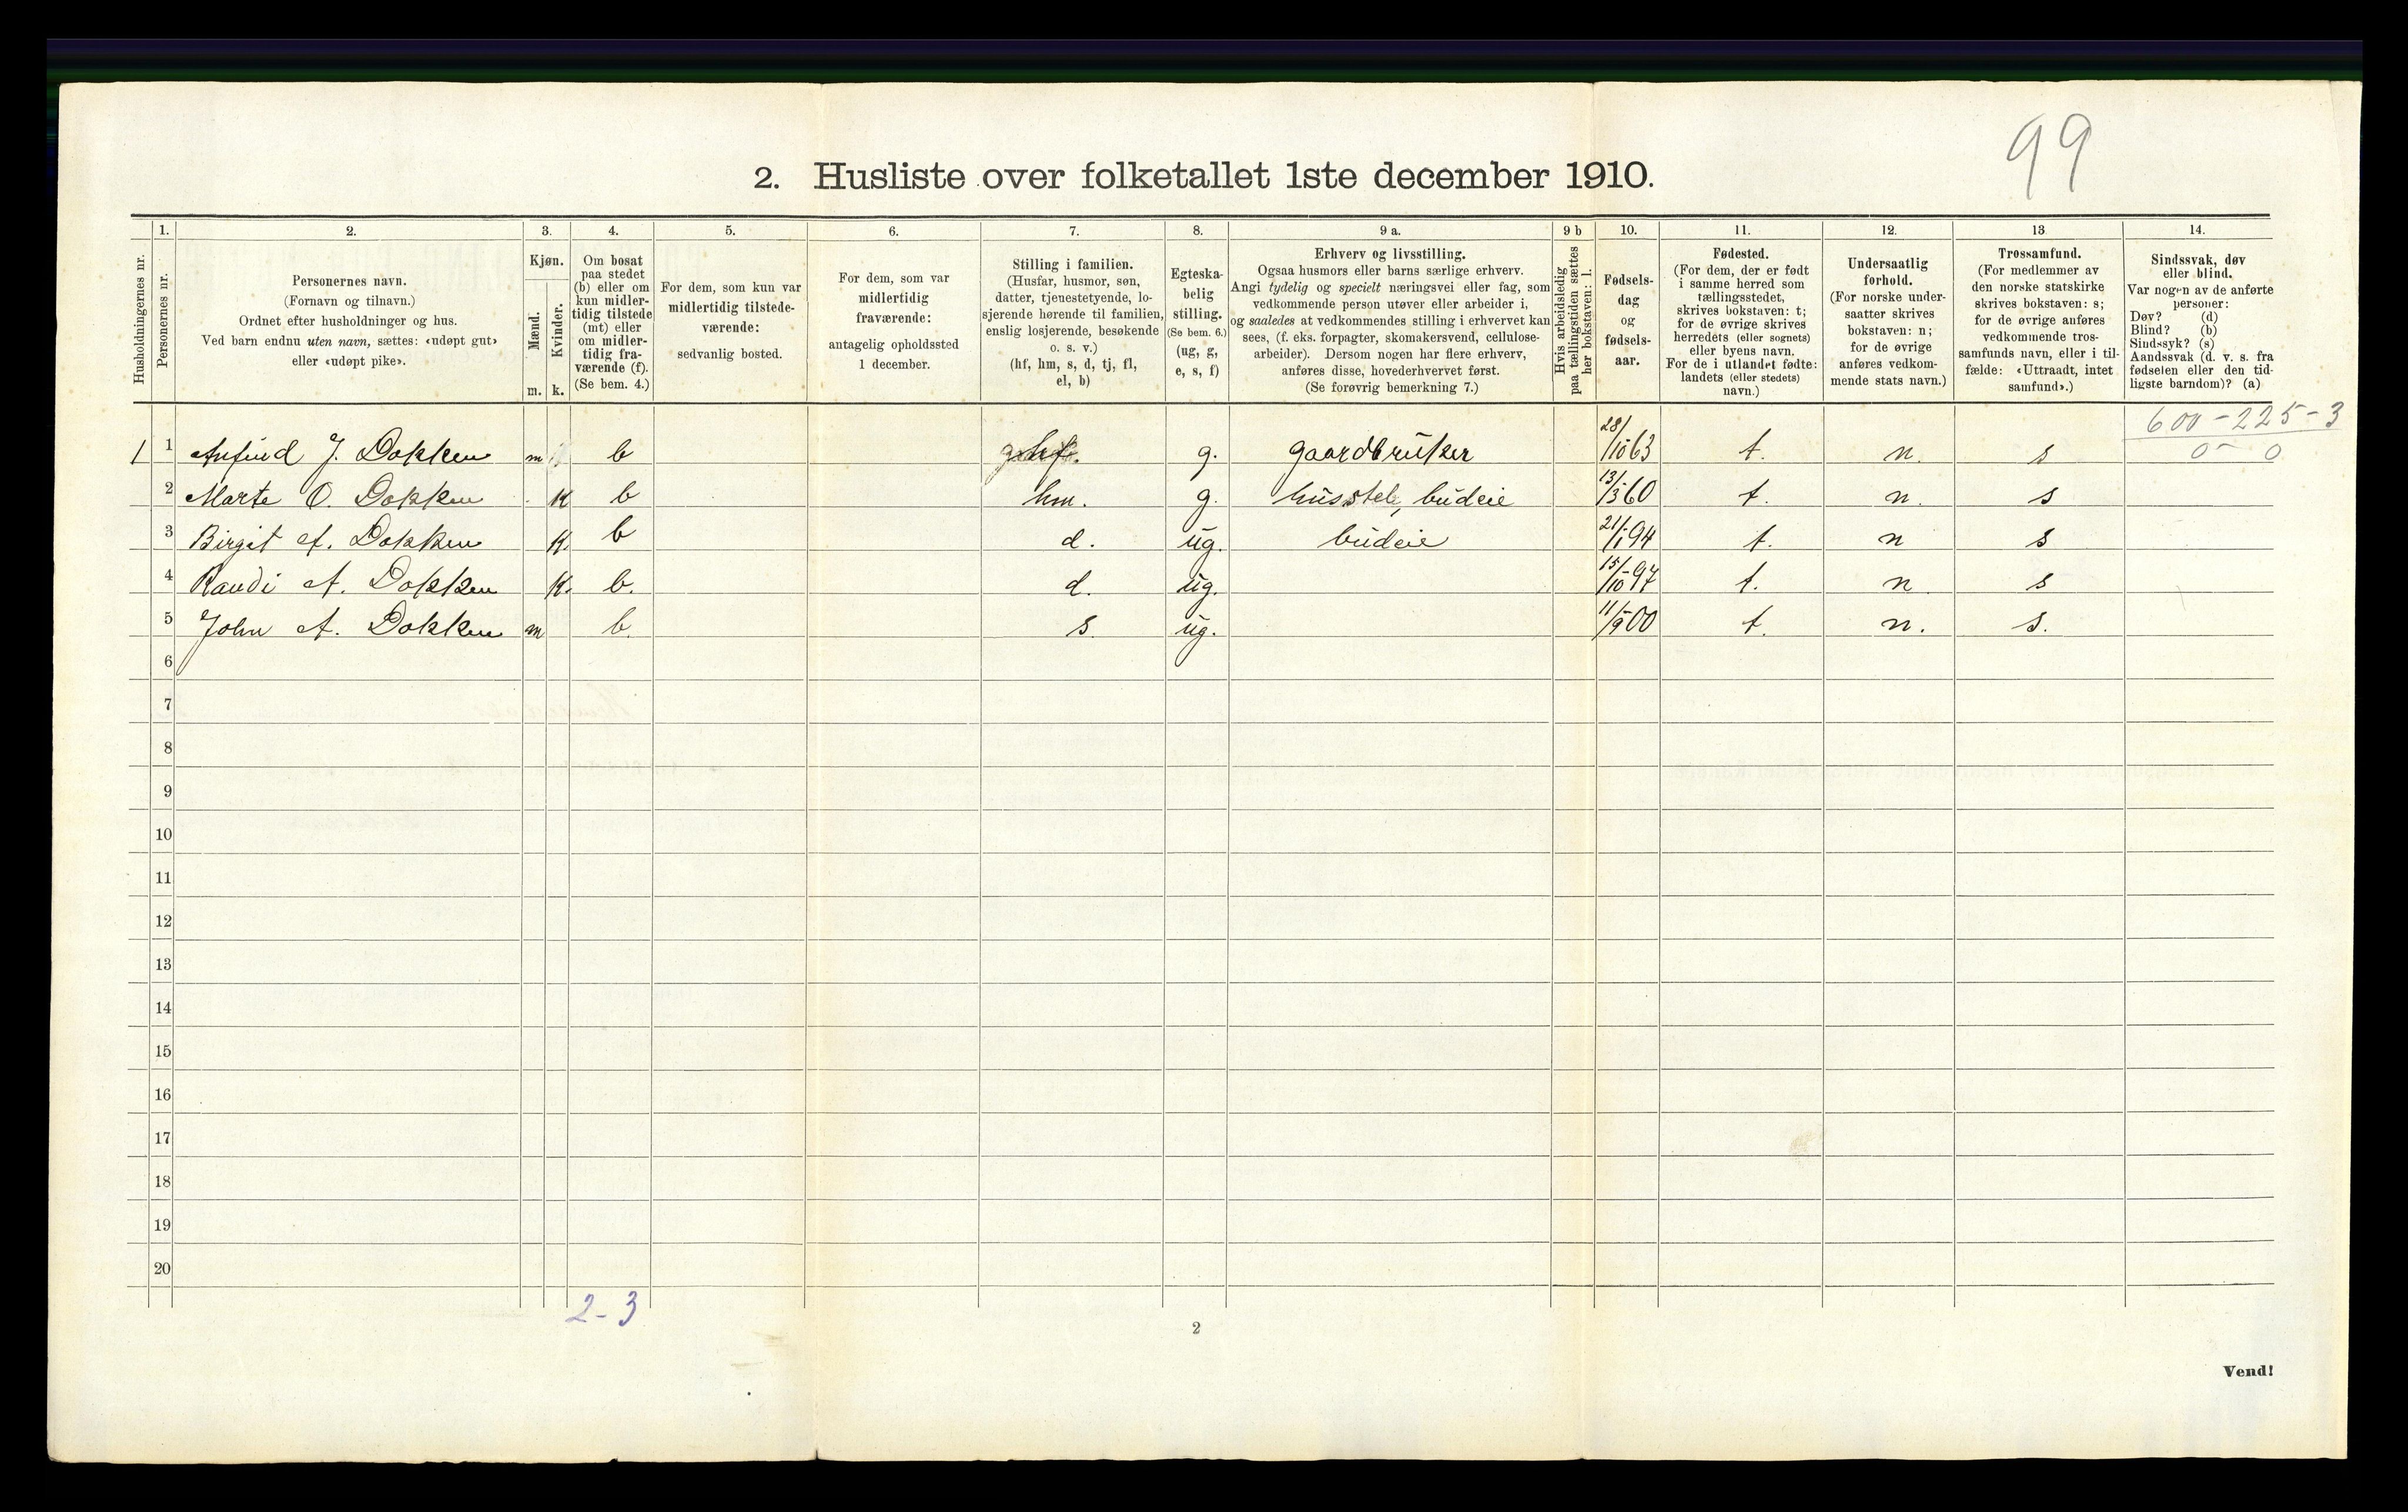 99
2. Husliste over folketallet 1ste december 1910.
Husholdningernes nr.
1. Personernes nr.
2. Personernes navn. (Fornavn og tilnavn.) Ordnet efter husholdninger og hus. Ved barn endnu uten navn, sættes: «udøpt gut» eller «udøpt pike».
3. Kjøn. Mænd. m. Kvinder. k.
4. Om bosat paa stedet (b) eller om kun midlertidig tilstede (mt) eller om midlertidig fraværende (f). (Se bem. 4.)
5. For dem, som kun var midlertidig tilstedeværende: sedvanlig bosted.
6. For dem, som var midlertidig fraværende: antagelig opholdssted 1 december.
7. Stilling i familien. (Husfar, husmor, søn, datter, tjenestetyende, losjerende hørende til familien, enslig losjerende, besøkende o. s. v.) (hf, hm, s, d, tj, fl, el, b)
8. Egteskabelig stilling. (Se bem. 6.) (ug, g, e, s, f)
9 a. Erhverv og livsstilling. Ogsaa husmors eller barns særlige erhverv. Angi tydelig og specielt næringsvei eller fag, som vedkommende person utøver eller arbeider i, og saaledes at vedkommendes stilling i erhvervet kan sees, (f. eks. forpagter, skomakersvend, cellulosearbeider). Dersom nogen har flere erhverv, anføres disse, hovederhvervet først. (Se forøvrig bemerkning 7.)
9 b Hvis arbeidsledig paa tællingstiden sættes her bokstaven: l.
10. Fødselsdag og fødselsaar.
11. Fødested. (For dem, der er født i samme herred som tællingsstedet, skrives bokstaven: t; for de øvrige skrives herredets (eller sognets) eller byens navn. For de i utlandet fødte: landets (eller stedets) navn.)
12. Undersaatlig forhold. (For norske undersaatter skrives bokstaven: n; for de øvrige anføres vedkommende stats navn.)
13 Trossamfund. (For medlemmer av den norske statskirke skrives bokstaven: s; for de øvrige anføres vedkommende trossamfunds navn, eller i tilfælde: «Uttraadt, intet samfund».)
14. Sindssvak, døv eller blind. Var nogen av de anførte personer: Døv? (d) Blind? (b) Sindssyk? (s) Aandssvak (d. v. s. fra fødselen eller den tidligste barndom)? (a)
600-225-3
0 - 0
1 1 Anfind J. Dokken m b hf. g. gaardbruker 28/10 63 t. n. s
2 Marte O. Dokken k b hm. g. husstel, budeie 13/3 60 t. n. s
3 Birgit A. Dokken k. b d. ug. budeie 21/1 94 t. n s
4 Randi A. Dokken k. b. d. ug. 15/10 97 t. n s
5 John A. Dokken m b. s. ug. 11/9 00 t. n. s.
6
7
8
9
10
11
12
13
14
15
16
17
18
19
20
2-3
2
Vend!